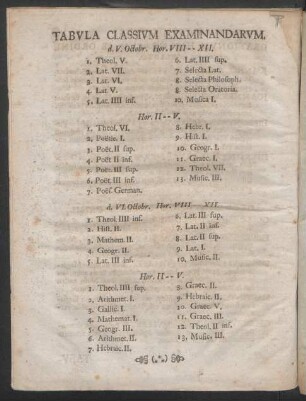 TABVLA CLASSIVM EXAMINANDARVM.
d. V. Octobr. Hor. VIII -- XII.
1. Theol. V.
2. Lat. VII.
3. Lat. VI.
4. Lat. V.
5. Lat. IIII inf.
6. Lat. IIII sup.
7. Selecta Lat.
8. Selecta Philosoph.
9. Selecta Oratoria.
10. Musica I.
Hor. II -- V.
1. Theol. VI.
2. Poësie. I.
3. Poët. II sup.
4. Poët II inf.
5. Poët. III sup.
6. Poët. III inf.
7. Poës. German.
8. Hebr. I.
9. Hist. I.
10. Geogr. I.
11. Graec. I.
12. Theol. VII.
13. Music. III.
d. VI. Octobr. Hor. VIII -- XII.
1. Theol IIII inf.
2. Hist. II.
3. Mathem. II.
4. Geogr. II.
5. Lat. III inf.
6. Lat. III sup.
7. Lat. II inf.
8. Lat. II sup.
9. Lat. I.
10. Music. II.
Hor. II -- V.
1. Theol. IIII sup.
2. Arithmet. I.
3. Gallic. I.
4. Mathemat. I.
5. Geogr. III.
6. Arithmet. II.
7. Hebraic. II.
8. Graec. II.
9. Hebraic. II.
10. Graec. V.
11. Graec. III.
12. Theol. II inf.
13. Music. III.